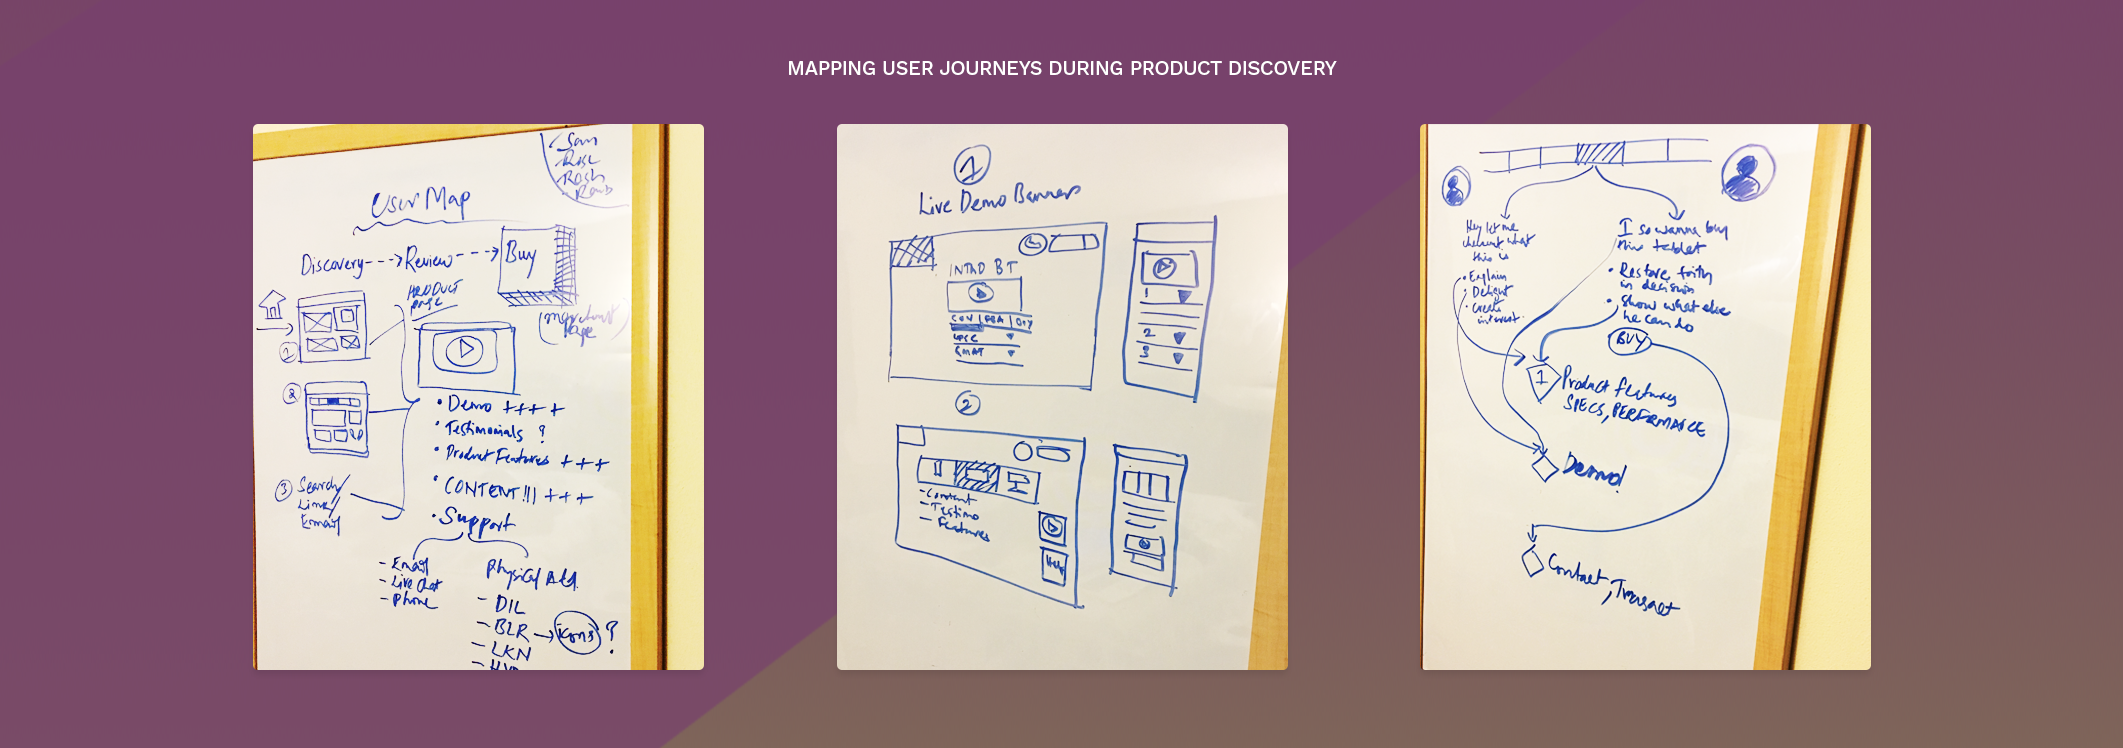 MAPPING USER JOURNEYS DURING PRODUCT DISCOVERY
Sam
User Map
Discovery Review Buy
PRODUCT
PAGE
(merchant
Page)
1
2
3 Search/
Link/
Email
• Demo ++++
• Testimonials ?
• Product Features +++
• CONTENT!!! +++
• Support
- Email
- Live Chat
- Phone
Physical Add.
- DIL
- BLR → icons ?
- LKN
1
Live Demo Banners
1
2
3
2
- Content
- Testimo
- Features
Help
Hey let me
checkout what
this is
• Explain
• Delight
• Create
interest.
I so wanna buy
this tablet
• Restore faith
in decision
• Show what else
he can do
BUY
1 Product features
SPECS, PERFORMANCE
Demo!
Contact, Transact